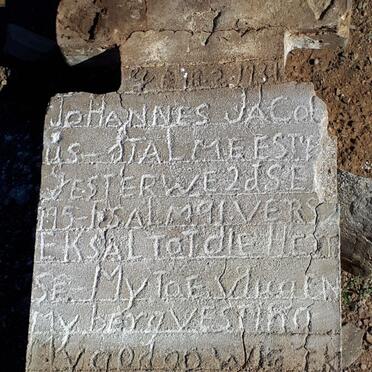 JOHANNES JACOB
US-STALMEESTE
GESTERWE 2d SE
PSALM 91 VERS
EK SAL TOT die HEER
SE-My TOE vlugEN
My berg VESTING
My god op WIE